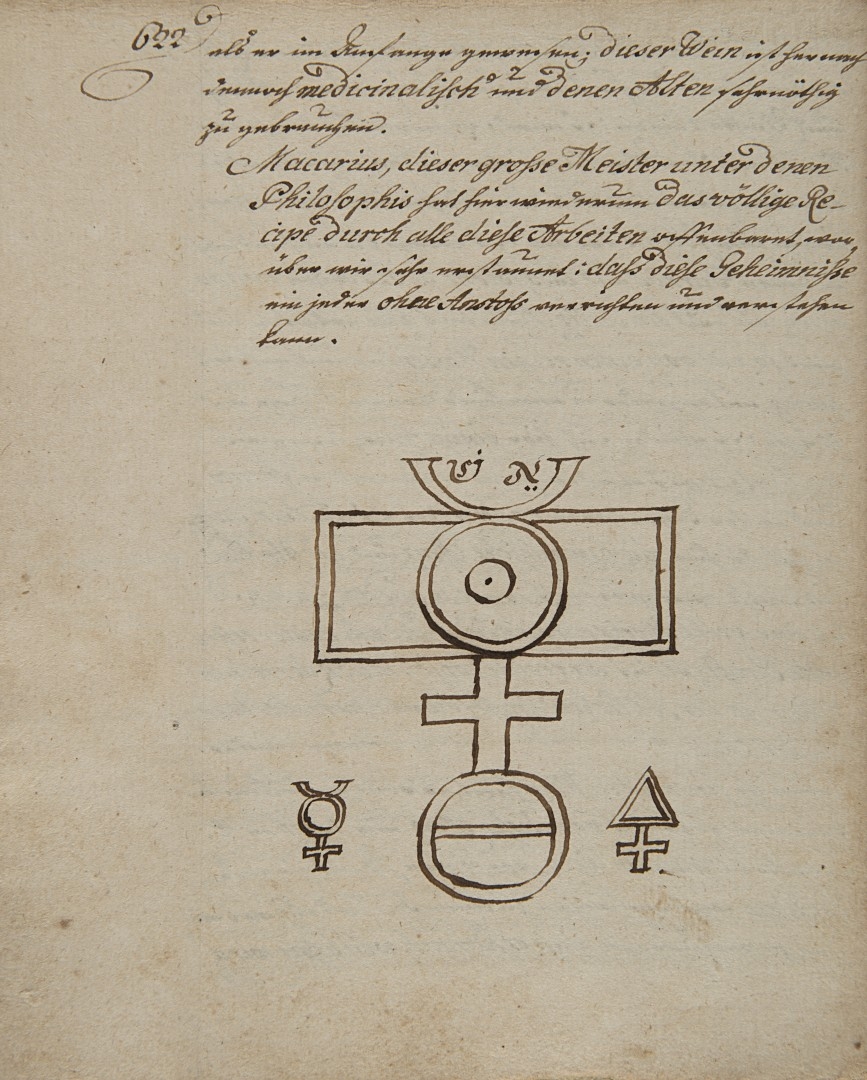 622
als er im Anfange gewesen; dieser Wein ist hernach
dennoch medicinalisch und denen Alten sehr nöthig
zu gebrauchen.
Macarius, dieser grosse Meister unter denen
Philosophis hat hier wiederum das völlige Re-
cipe durch alle diese Arbeiten offenbaret, wor-
über wir sehr erstaunet: dass diese Geheimnisse
ein jeder ohne Anstoss verrichten und verstehen
kann.